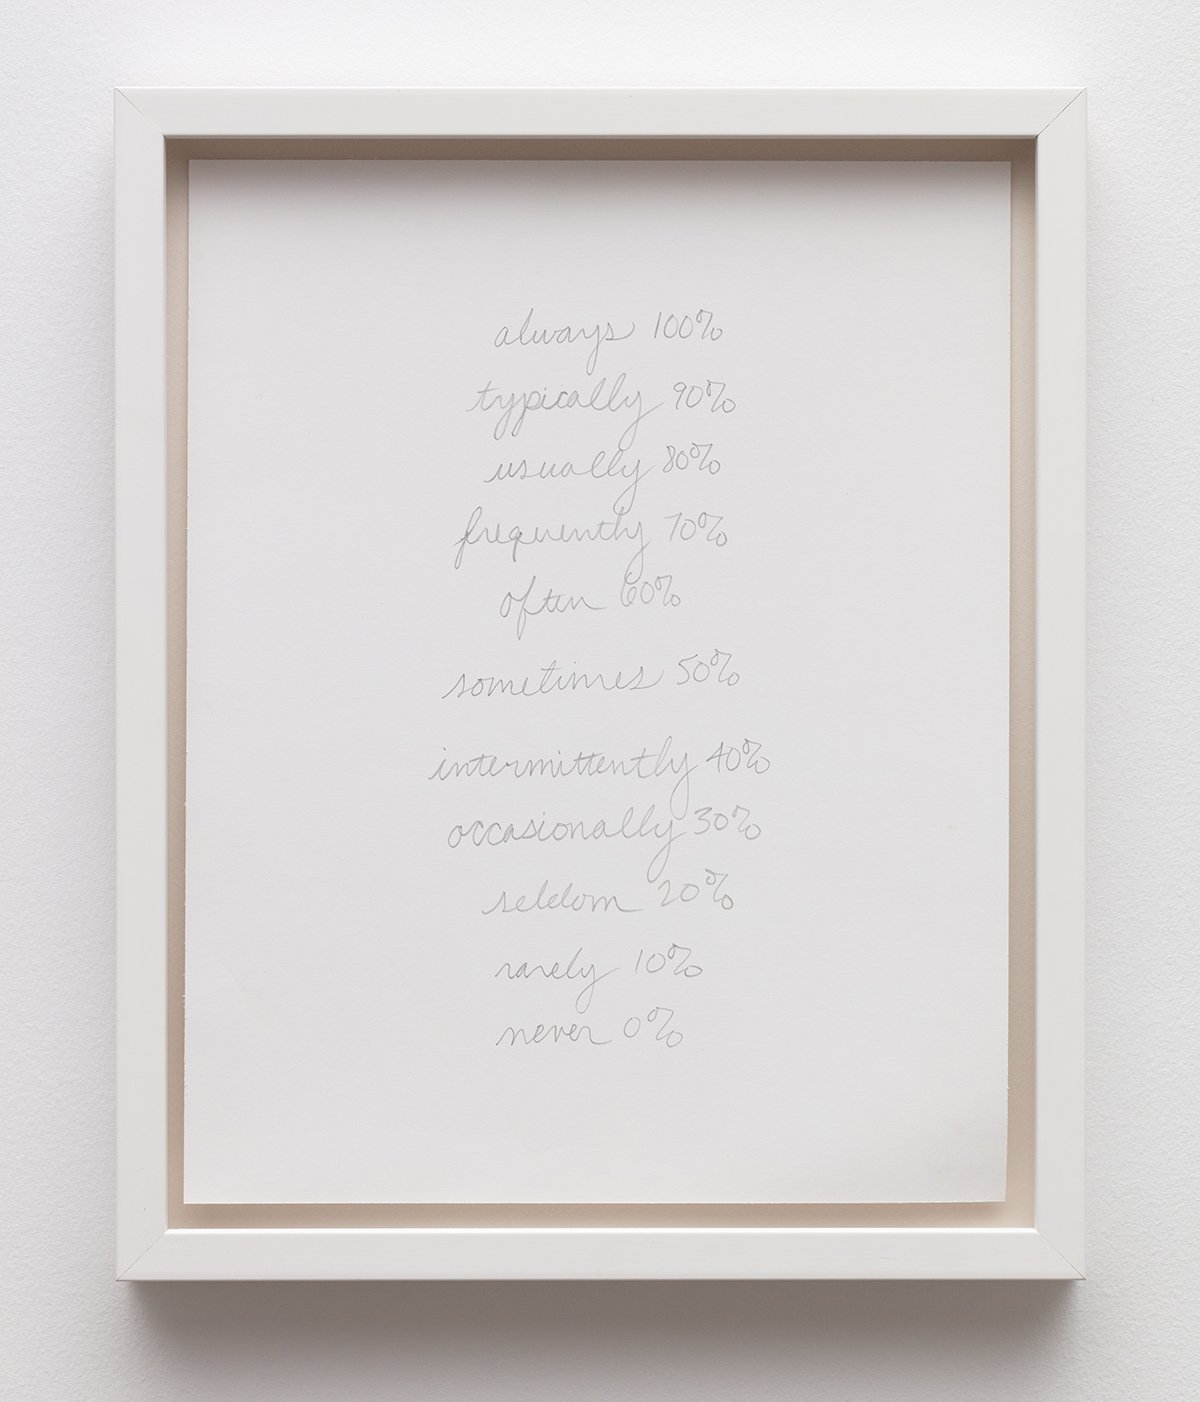 always 100%
typically 90%
usually 80%
frequently 70%
often 60%
sometimes 50%
intermittently 40%
occasionally 30%
seldom 20%
rarely 10%
never 0%